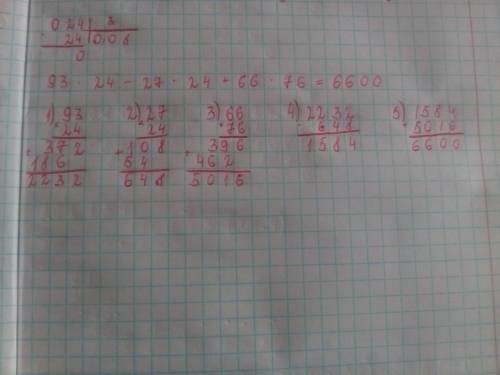 0 24 | 3
- 24 | 0,08
0
93 · 24 - 27 · 24 + 66 · 76 = 6600
1) 93 2) 27 3) 66 4) 2232 5) 1584
· 24 · 24 · 76 - 648 + 5016
+ 372 + 108 + 396 1584 6600
186 54 462
2232 648 5016